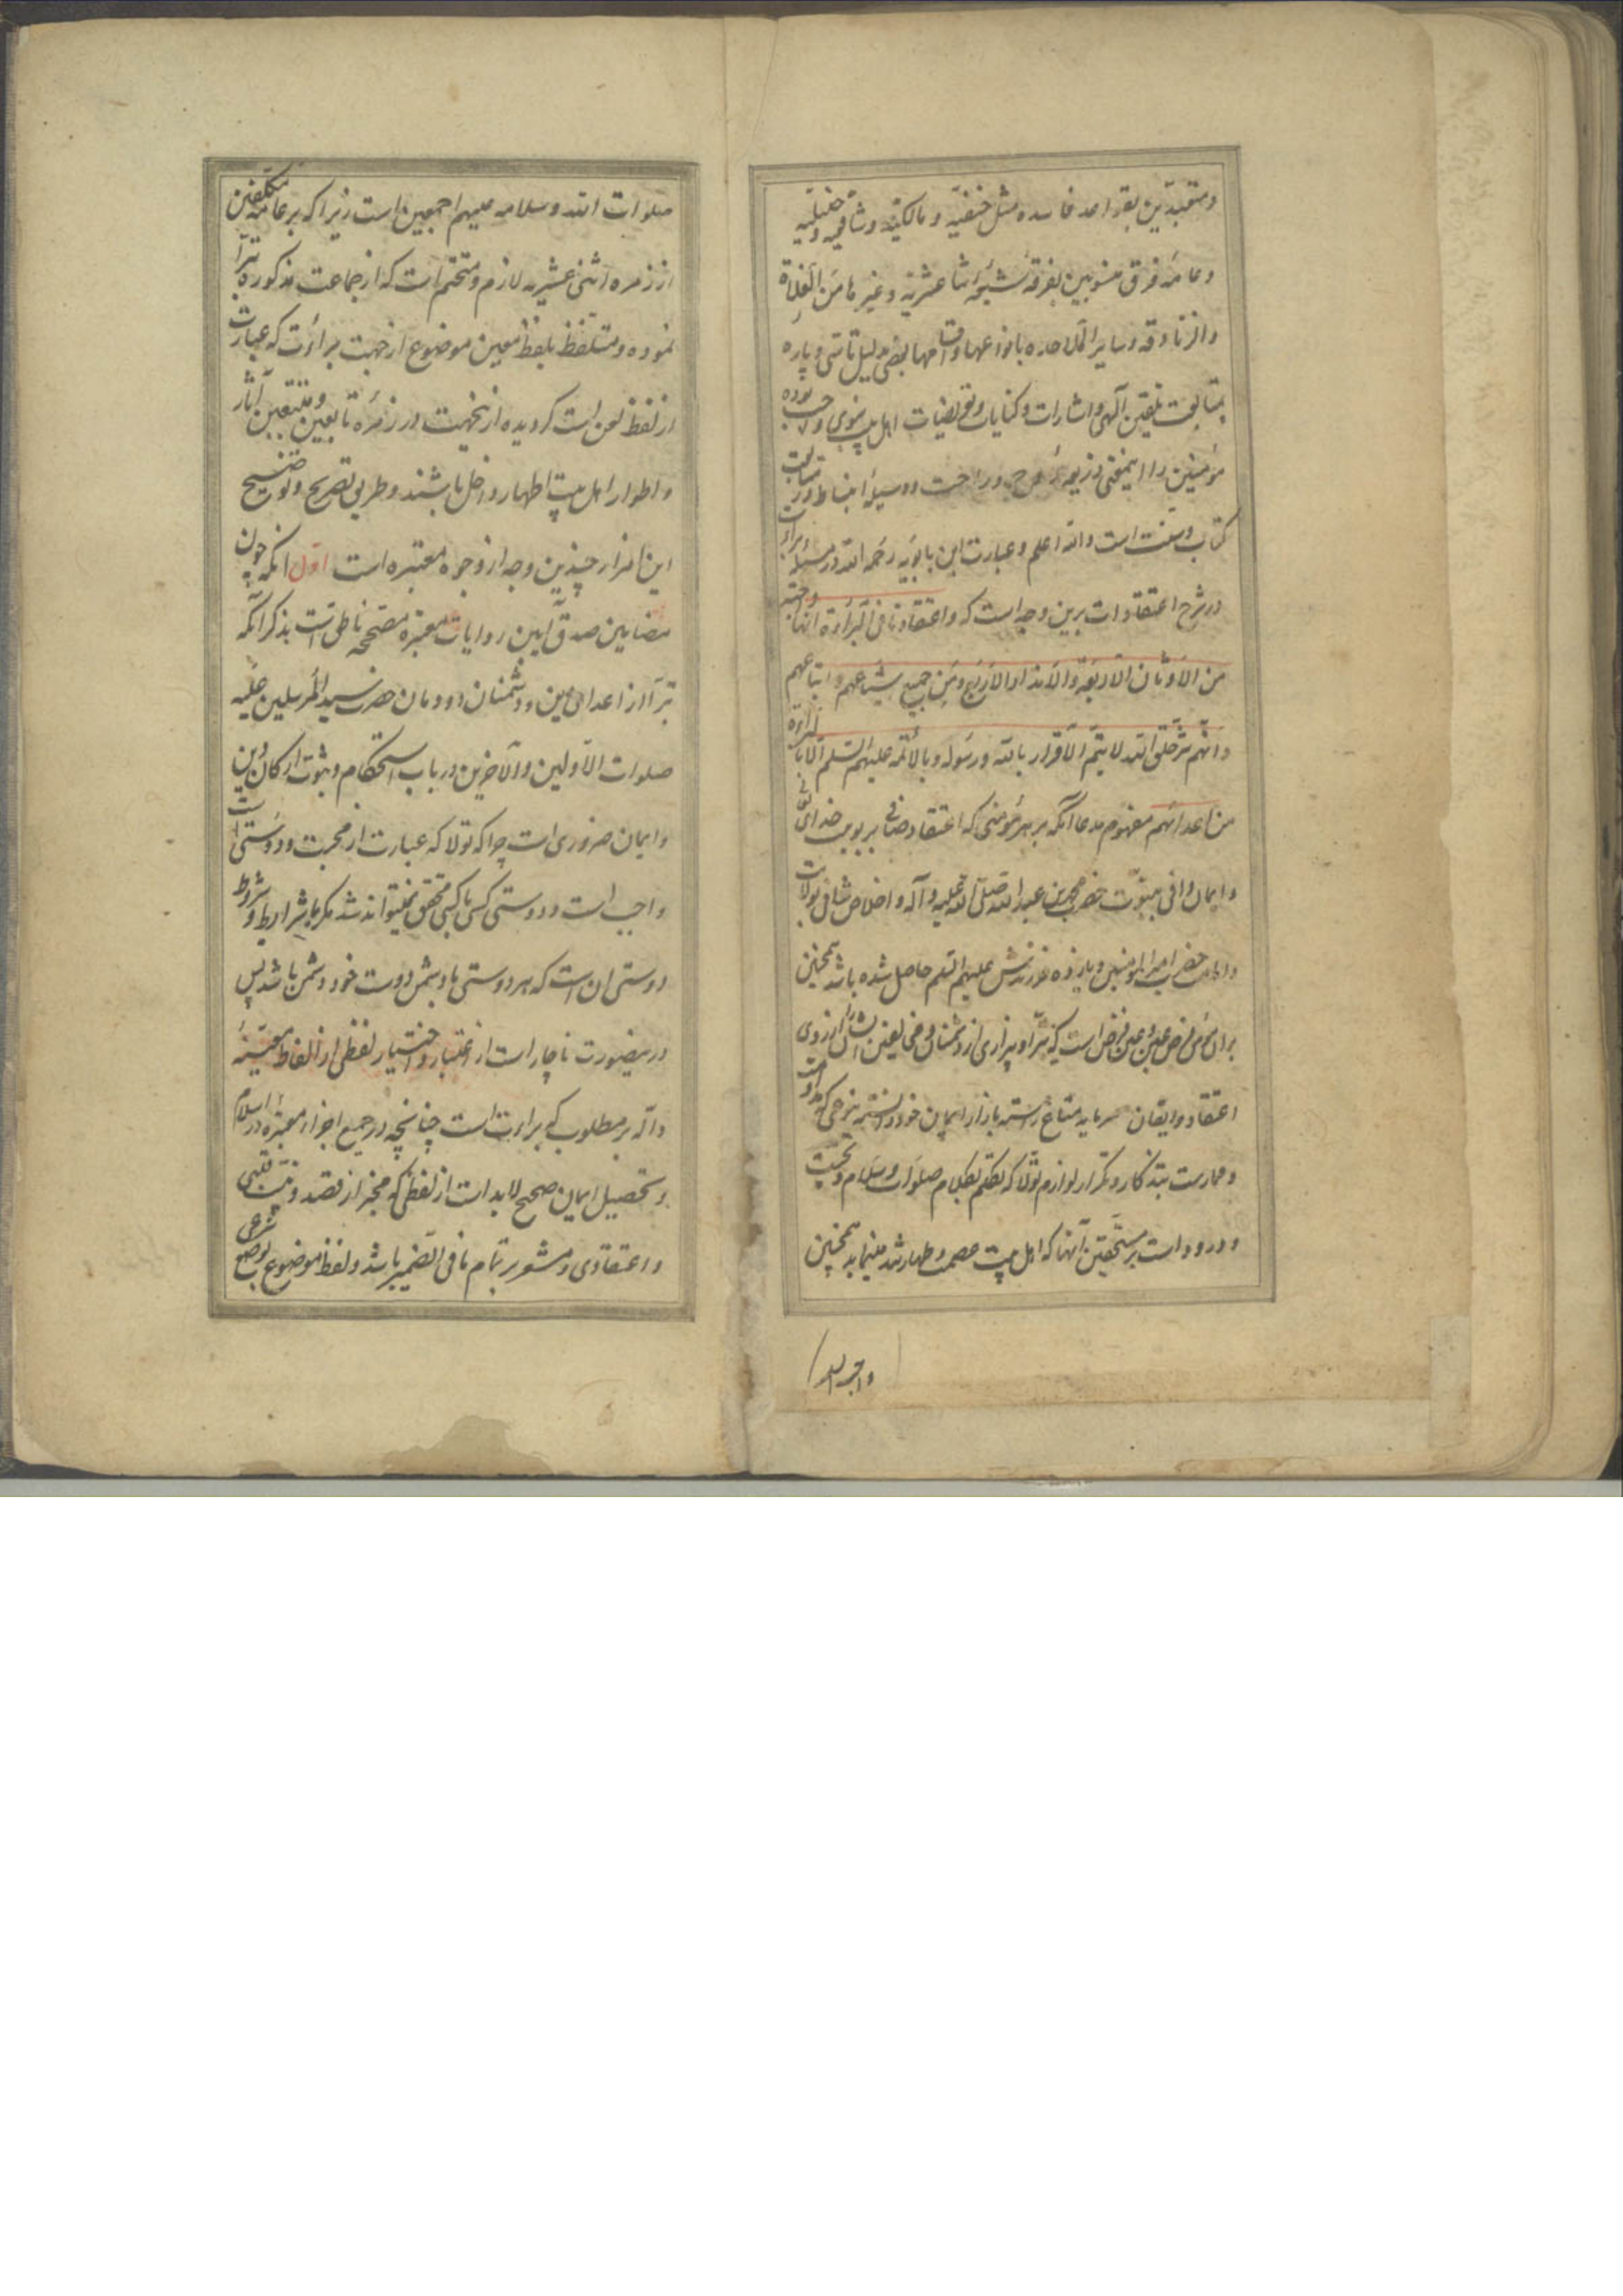 ومتعبدین بقواعد فاسده مثل حنفیه و مالکیه و شافعیه و حنبلیه
وعامهٔ فرق منسوبین بفرقهٔ شیعه اثنا عشریه و غیرها من الغلاة
والزنادقه وسایر الملاحده بانواعها واقسامها بعضی بدلیل تأسی و پاره
بمتابعت تلقین آلهی و اشارات و کنایات و تعریضات اهل بیت نبوی واجب بوده
مؤمنین را اینمعنی ذریعهٔ روح و راحت و وسیلهٔ انبساط در متابعت
کتاب و سنت است والله اعلم و عبارت ابن بابویه رحمه الله در مسئله براءت
در شرح اعتقادات برین وجه است که واعتقادنا فی البراءة انها واجبة
من الاوثان الاربعة والانداد الاربع ومن جمیع اشیاعهم واتباعهم
وانهم شر خلق الله لا یتم الاقرار بالله ورسوله وبالائمه علیهم السلم الا بالبراءة
من اعدائهم مفهوم مدعا آنکه بر هر مؤمنی که اعتقاد صافی بربوبیت خدای تعالی
و ایمان وافی بنبوت حضرت محمد بن عبدالله صلی الله علیه وآله و اخلاص شافی بولایت
و امامت حضرت امیر المؤمنین و یازده فرزندش علیهم السلم حاصل شده باشد همچنین
بر آن مؤمن فرض عین و عین فرض است که تبرا و بیزاری از دشمنان و مخالفین ایشان را از روی
اعتقاد و ایقان سرمایه متاع رسته بازار ایمان خود دانسته بنوعی که مداومت
و ممارست بتذکار و تکرار لوازم تولا که تکلم بکلام صلوات و سلام و تحیت
و درود است بر مستحقین آنها که اهل بیت عصمت و طهارتند مینماید همچنین
صلوات الله وسلامه علیهم اجمعین است زیرا که بر عامه مکلفین
از زمره اثنی عشریه لازم و متحتم است که از جماعت مذکوره تبرا
نموده و متلفظ بلفظ معین موضوع از جهت براءت که عبارت
از لفظ لعن است گردیده ازینجهت در زمرهٔ تابعین و متتبعین آثار
و اطوار اهل بیت اطهار داخل باشند و طریق تصریح و توضیح
این از چندین وجه از وجوه معتبره است اول آنکه چون
مضامین صدق آیین روایات معتبره مصححه ناطق است بذکر آنکه
تبرا از اعدای دین و دشمنان دودمان حضرت سید المرسلین علیه
صلوات الاولین والآخرین در باب استحکام و ثبوت ارکان دین
و ایمان ضروری است چرا که تولا که عبارت از محبت و دوستی است
واجب است و دوستی کسی با کسی محقق نمیتواند شد مگر با شرایط و شروط
دوستی آن است که هر دوستی با دشمن دوست خود دشمن باشد پس
درینصورت ناچار است از اعتبار و اختیار لفظی از الفاظ معینهٔ
داله بر مطلوب که براءت است چنانچه در جمیع اجزاء معتبره در اسلام
و تحصیل ایمان صحیح لابد است از لفظی که مخبر از قصد و نیت قلبی
و اعتقادی و مشعر بر تمام ما فی الضمیر باشد و لفظ موضوع بوضع شرعی